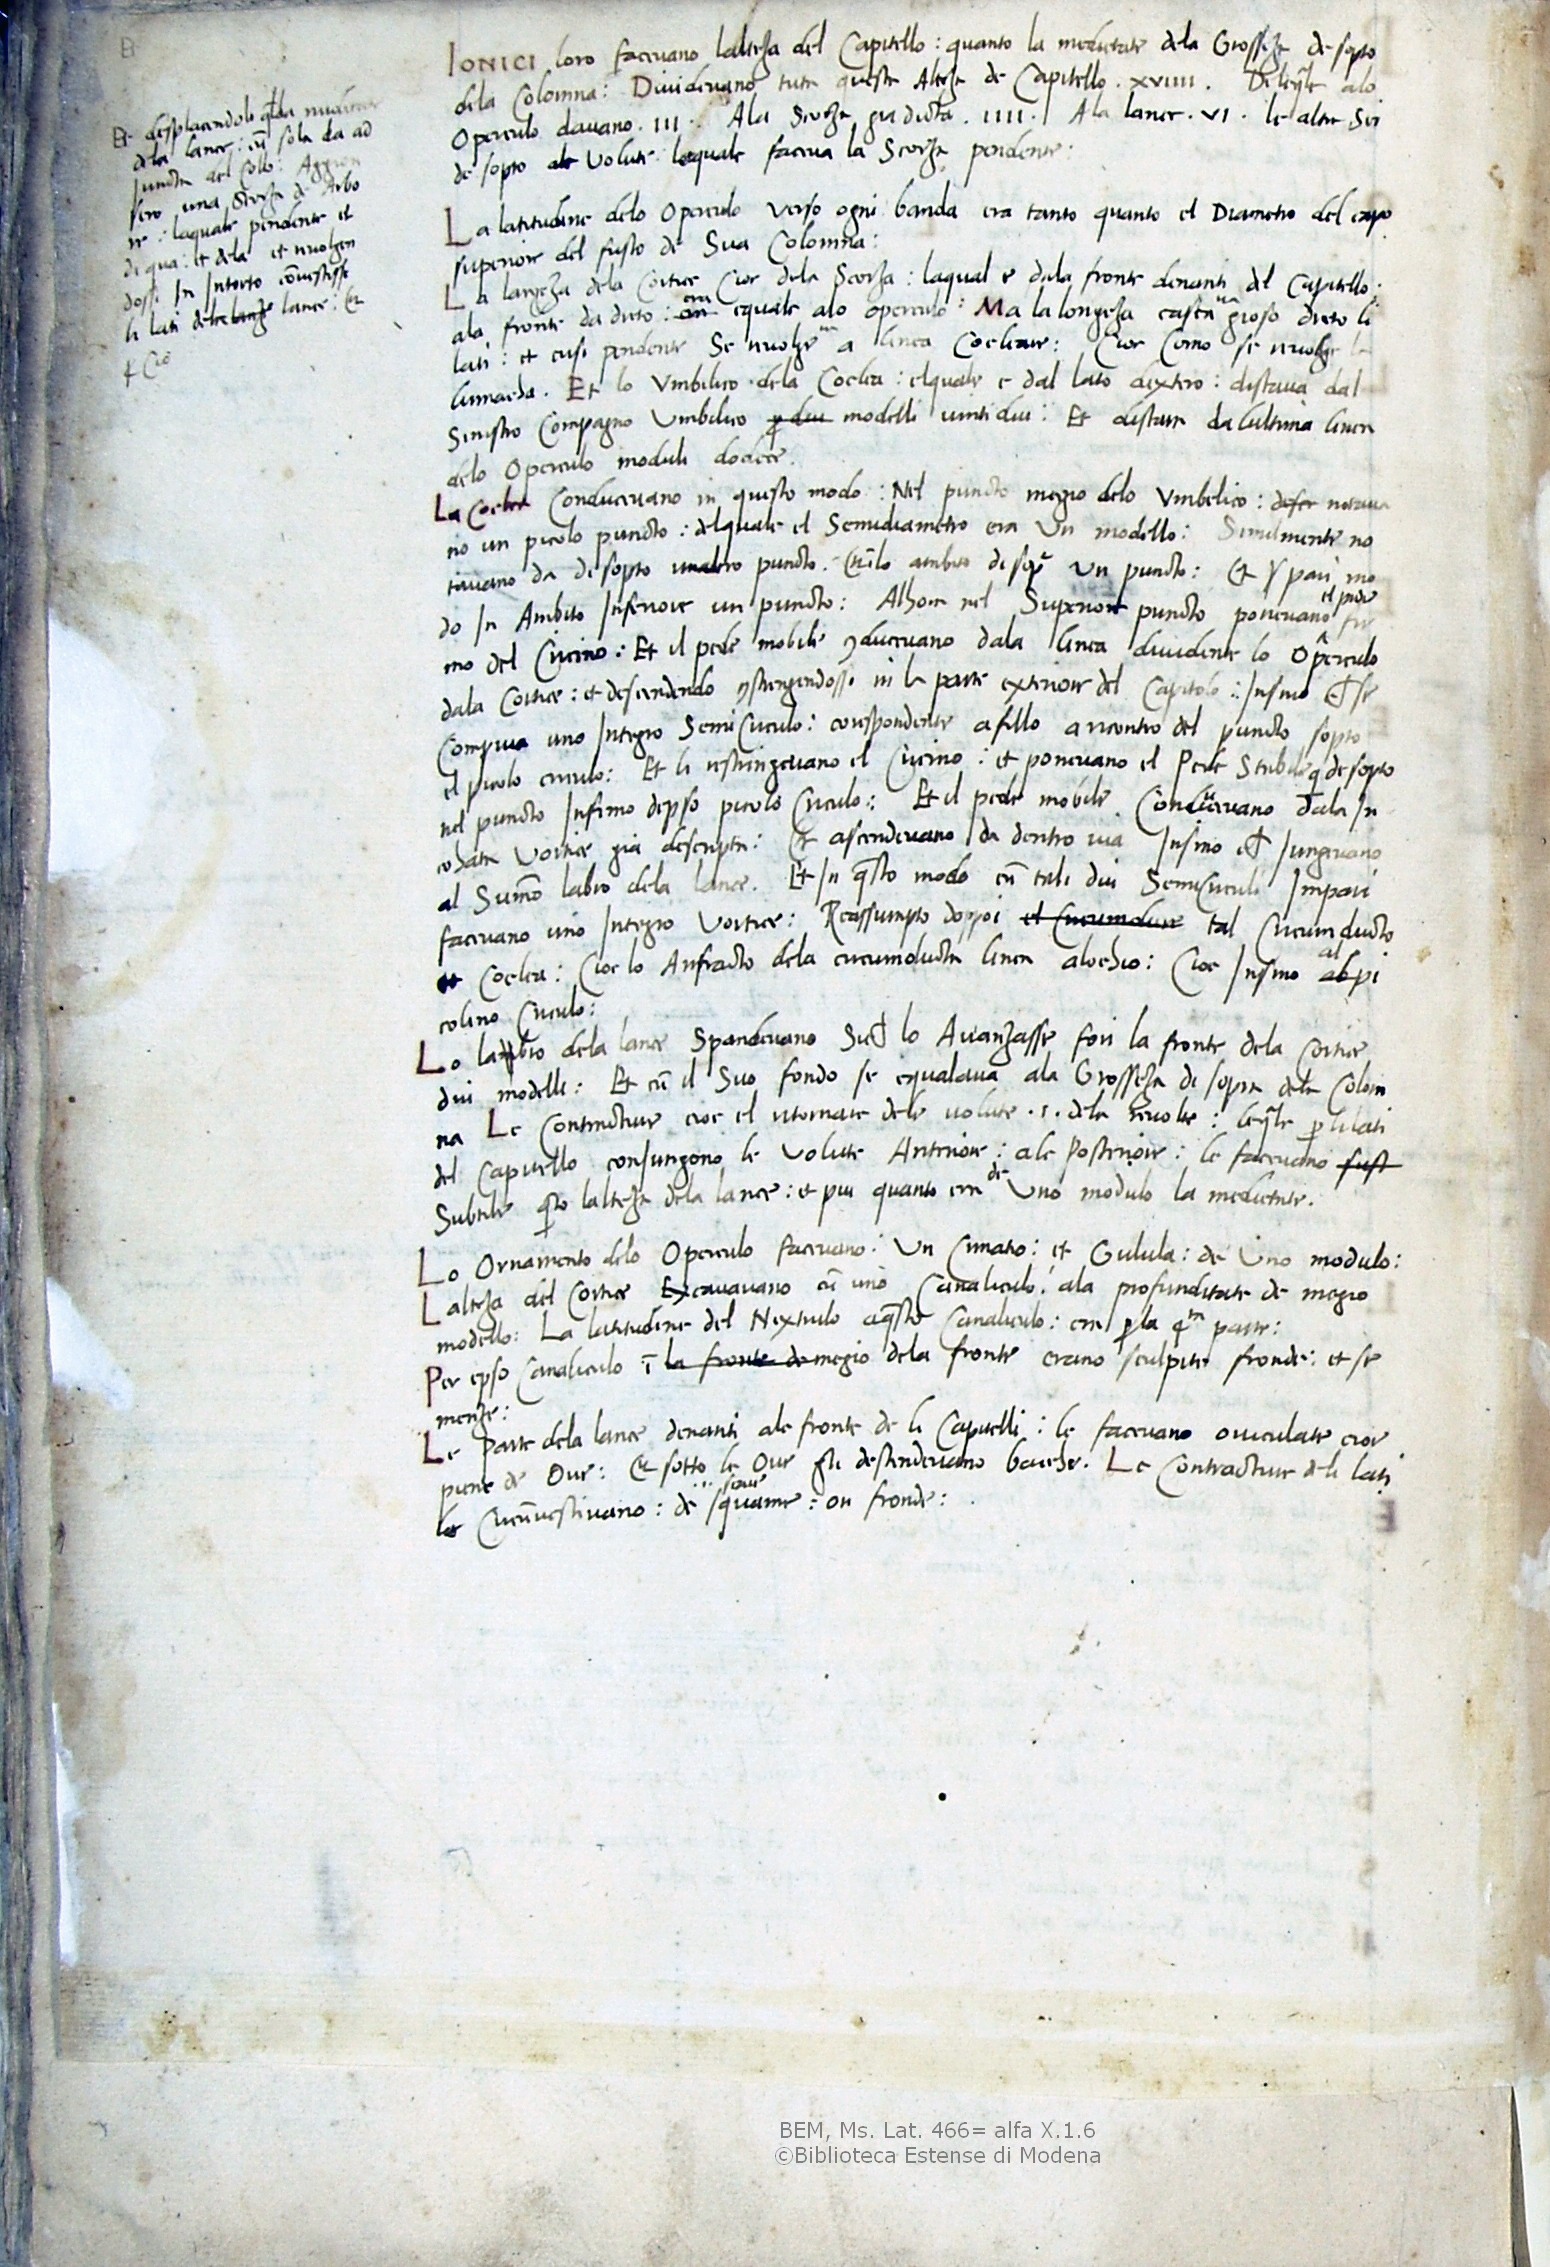 Et desplacendoli q̄lla nudita
dela lance: cū sola da ad
Juncta del Colo: Aggion
sero una Scorza de Arbo
re: laquale pendente et
di qua: et dela et revolgen
dossi In Intorto cōvestisse
li lati dele lance: Et
Cio
IONICI loro facevano lalteza del Capitello: quanto la medietate dela Grosseza de sopto
dela Colomna: Dividevano tuta questa Alteza de Capitello .XVIIII. Deleq̄le alo
Operculo davano .III. Ala Scorza gia dicta .IIII. Ala lance .VI. le altre Sei
de sopto ale Volute lequale faceva la Scorza pendente:
La latitudine delo Operculo verso ogni banda era tanto quanto el Diametro del capo
superiore del fusto de Sua Colomna:
La largeza dela Cortice Cioe dela Scorza: laqual e dala fronte denanti del Capitello:
ala fronte da drieto: era equale alo operculo: Ma la longeza casca gioso drieto li
lati: et cusi pendente Se revolge a linea Cocleare: Cioe Como se revolge la
lumacha. Et lo Umbilico dela Coclea: elquale e dal lato dextro: distava dal
Sinistro Compagno Umbilico p̱ dui modelli vinti dui: Et distava da lultima linea
delo Operculo moduli dodece.
La Coclea Conducevano in questo modo: Nel puncto megio delo Umbelico: notava
no un picolo puncto: delquale el Semidiametro era Un modello: Similmente no
tavano da di sopto unaltro puncto. Et ī lo ambito di sop̱ Un puncto: Et p̱ pari mo
do In Ambito Inferiore un puncto: Alhora nel Superiore puncto ponevano el pede fir
mo del Circino: Et il pede mobile ꝯducevano dala linea dividente lo Operculo
dala Cortice: et descendendo ꝯstrengendossi in la parte exteriore del Capitolo: Insino ch se
Compiva uno Integro Semicirculo: corespondente a fillo a ricontro del puncto sopto
el picolo circulo: Et li restringevano el Circino: et ponevano el Pede Stabile de sopto
nel puncto Infimo depso picolo Circulo: Et il pede mobile Conducevano dala In
cohata Vortice gia descripta: Et ascendevano da dentro via Insino ch Jungevano
al Sūmo labro dela lance. Et In q̄sto modo cū tali dui Semicirculi Impari
facevano uno Integro Vortice: Reassumpto doppoi el Circumducere tal Circumducto
et Coclea: Cioe lo Anfracto dela circumducta linea alochio: Cioe Insino al pi
colino Circulo:
Lo labro dela lance Spandevano Sich lo Avanzasse fori la fronte dela Cortice
dui modelli: Et cū il Suo fondo se equalava ala Grosseza di sopra dela Colom
na Le Contracture cioe el ritornare dele volute .I. dele revolte: leq̄le p̱ li lati
del Capitello conjungono le Volute Anteriore: ale Posteriore: le facevano fust
Subtile q̄to lalteza dela lance: et piu quanto era de Uno modulo la medietate.
Lo Ornamento delo Operculo facevano: Un Cimatio: et Gulula: de Uno modulo:
Lalteza del Cortice Excavavano cū uno Canaliculo: ala profunditate de megio
modello: La latitudine del Nextrulo a q̄sto Canaliculo: era p̱ la q̄ta parte:
Per epso Canaliculo ī la fronte de megio dela fronte erano sculpite fronde: et se
menze:
Le parte dela lance denanti ale fronte de li Capitelli: le facevano oviculate cioe
piene de Ove: Et sotto le Ove gli destendevano bache. Le Contracture deli lati
le Circūvestivano: de squame: ou fronde:
BEM, Ms. Lat. 466= alfa X.1.6
©Biblioteca Estense di Modena